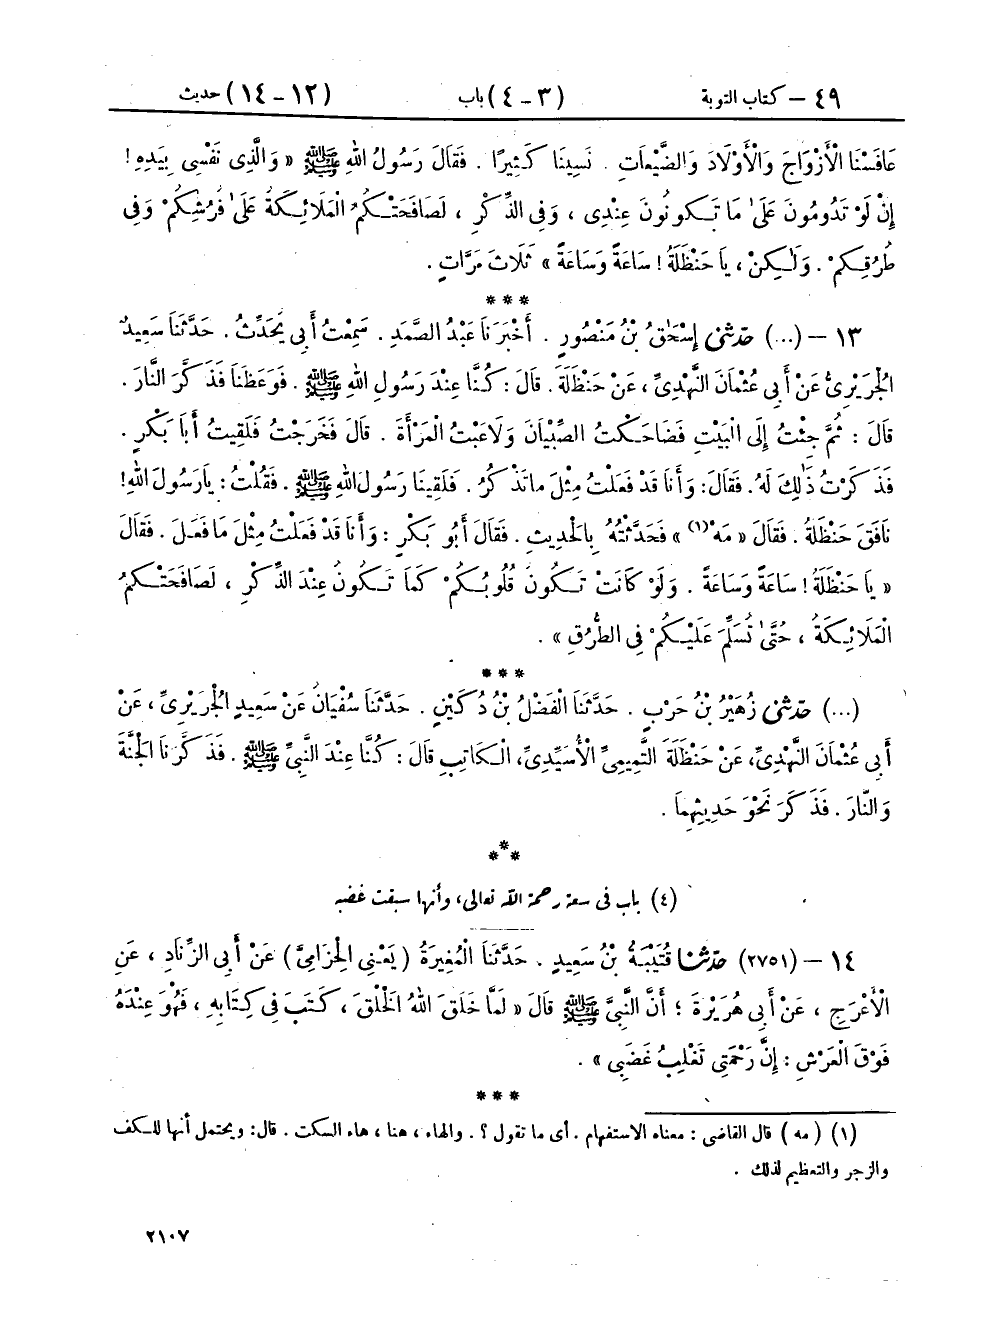 ٤٩ – كتاب التوبة (٣ – ٤) باب (١٢ – ١٤) حديث
عَافَسْنَا الْأَزْوَاجَ وَالْأَوْلَادَ وَالضَّيْعَاتِ . نَسِينَا كَثِيرًا . فَقَالَ رَسُولُ اللهِ ﷺ « وَالَّذِى نَفْسِى بِيَدِهِ !
إِنْ لَوْ تَدُومُونَ عَلَىٰ مَا تَكُونُونَ عِنْدِى ، وَفِى الذِّكْرِ ، لَصَافَحَتْكُمُ الْمَلَائِكَةُ عَلَىٰ فُرُشِكُمْ وَفِى
طُرُقِكُمْ . وَلَـٰكِنْ ، يَا حَنْظَلَةُ ! سَاعَةً وَسَاعَةً » ثَلَاثَ مَرَّاتٍ .
* * *
١٣ – (...) حدّثنى إِسْحَٰقُ بْنُ مَنْصُورٍ . أَخْبَرَنَا عَبْدُ الصَّمَدِ . سَمِعْتُ أَبِى يُحَدِّثُ . حَدَّثَنَا سَعِيدٌ
الْجُرَيْرِىُّ عَنْ أَبِى عُثْمَانَ النَّهْدِىِّ ، عَنْ حَنْظَلَةَ . قَالَ : كُنَّا عِنْدَ رَسُولِ اللهِ ﷺ . فَوَعَظَنَا فَذَكَّرَ النَّارَ .
قَالَ : ثُمَّ جِئْتُ إِلَى الْبَيْتِ فَضَاحَكْتُ الصِّبْيَانَ وَلَاعَبْتُ الْمَرْأَةَ . قَالَ فَخَرَجْتُ فَلَقِيتُ أَبَا بَكْرٍ .
فَذَكَرْتُ ذٰلِكَ لَهُ . فَقَالَ : وَأَنَا قَدْ فَعَلْتُ مِثْلَ مَا تَذْكُرُ . فَلَقِينَا رَسُولَ اللهِ ﷺ . فَقُلْتُ : يَارَسُولَ اللهِ !
نَافَقَ حَنْظَلَةُ . فَقَالَ « مَهْ(١) » فَحَدَّثْتُهُ بِالْحَدِيثِ . فَقَالَ أَبُو بَكْرٍ : وَأَنَا قَدْ فَعَلْتُ مِثْلَ مَا فَعَلَ . فَقَالَ
« يَا حَنْظَلَةُ ! سَاعَةً وَسَاعَةً . وَلَوْ كَانَتْ تَكُونُ قُلُوبُكُمْ كَمَا تَكُونُ عِنْدَ الذِّكْرِ ، لَصَافَحَتْكُمُ
الْمَلَائِكَةُ ، حَتَّىٰ تُسَلِّمَ عَلَيْكُمْ فِى الطُّرُقِ » .
* * *
(...) حدّثنى زُهَيْرُ بْنُ حَرْبٍ . حَدَّثَنَا الْفَضْلُ بْنُ دُكَيْنٍ . حَدَّثَنَا سُفْيَانُ عَنْ سَعِيدٍ الْجُرَيْرِىِّ ، عَنْ
أَبِى عُثْمَانَ النَّهْدِىِّ، عَنْ حَنْظَلَةَ التَّمِيمِىِّ الْأُسَيِّدِىِّ، الْكَاتِبِ قَالَ : كُنَّا عِنْدَ النَّبِىِّ ﷺ . فَذَكَّرَنَا الْجَنَّةَ
وَالنَّارَ . فَذَكَرَ نَحْوَ حَدِيثِهِمَا .
* * *
(٤) باب فى سعة رحمة الله تعالى، وأنها سبقت غضبه
١٤ – (٢٧٥١) حدّثنا قُتَيْبَةُ بْنُ سَعِيدٍ . حَدَّثَنَا الْمُغِيرَةُ ( يَعْنِى الْحِزَامِىَّ ) عَنْ أَبِى الزِّنَادِ ، عَنِ
الْأَعْرَجِ ، عَنْ أَبِى هُرَيْرَةَ ؛ أَنَّ النَّبِىَّ ﷺ قَالَ « لَمَّا خَلَقَ اللهُ الْخَلْقَ ، كَتَبَ فِى كِتَابِهِ ، فَهُوَ عِنْدَهُ
فَوْقَ الْعَرْشِ : إِنَّ رَحْمَتِى تَغْلِبُ غَضَبِى » .
* * *
(١) ( مه ) قال القاضى : معناه الاستفهام . أى ما تقول ؟ . والهاء ، هنا ، هاء السكت . قال: ويحتمل أنها للكف
والزجر والتعظيم لذلك .
٢١٠٧